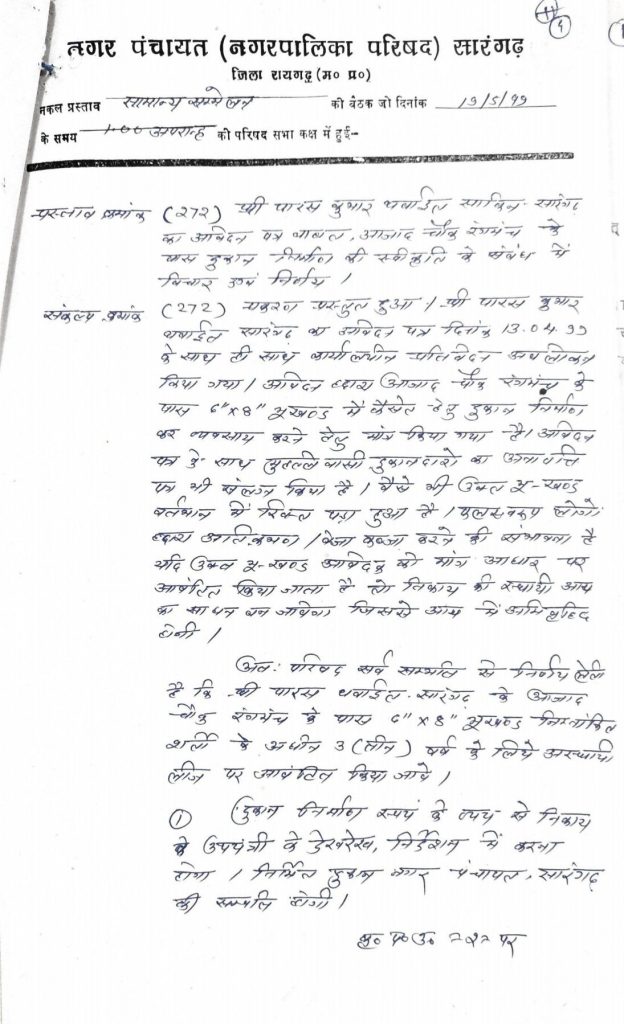 नगर पंचायत (नगरपालिका परिषद) सारंगढ़
जिला रायगढ़ (म० प्र०)
नकल प्रस्ताव सामान्य सम्मेलन की बैठक जो दिनांक 13/5/99
के समय 1.00 अपरान्ह की परिषद सभा कक्ष में हुई-
प्रस्ताव क्रमांक (272) श्री पारस कुमार थवाईत साकिन सारंगढ़
का आवेदन पत्र बाबत, आजाद चौक रंगमंच के
पास दुकान निर्माण की स्वीकृति के संबंध में
विचार एवं निर्णय ।
संकल्प क्रमांक (272) प्रकरण प्रस्तुत हुआ । श्री पारस कुमार
थवाईत सारंगढ़ का आवेदन पत्र दिनांक 13.04.99
के साथ ही साथ कार्यालयीन प्रतिवेदन अवलोकन
किया गया । आवेदन द्वारा आजाद चौक रंगमंच के
पास 6"x8" भूखण्ड में हेतु दुकान निर्माण
कर व्यवसाय करने हेतु मांग किया गया है । आवेदन
पत्र के साथ मुहल्ले वासी दुकानदारो का अनापत्ति
पत्र भी संलग्न किया है । वैसे भी उक्त भू-खण्ड
वर्तमान में रिक्त पड़ा हुआ है । फलस्वरूप लोगों
द्वारा अतिक्रमण / बेजा कब्जा करने की संभावना है
यदि उक्त भू-खण्ड आवेदक को मांग आधार पर
आबंटित किया जाता है तो निकाय की स्थायी आय
का साधन बन जावेगा जिससे आय में अभिवृद्धि
होगी ।
अतः परिषद सर्व सम्मति से निर्णय लेती
है कि श्री पारस थवाईत सारंगढ़ के आजाद
चौक रंगमंच के पास 6"x8" भूखण्ड निम्नांकित
शर्तो के अधीन 3 (तीन) वर्ष के लिये अस्थायी
लीज पर आबंटित किया जावे ।
① दुकान निर्माण स्वयं के व्यय से निकाय
के उपयंत्री के देखरेख, निर्देशन में करना
होगा । निर्मित दुकान नगर पंचायत, सारंगढ़
की सम्पत्ति होगी ।
पर